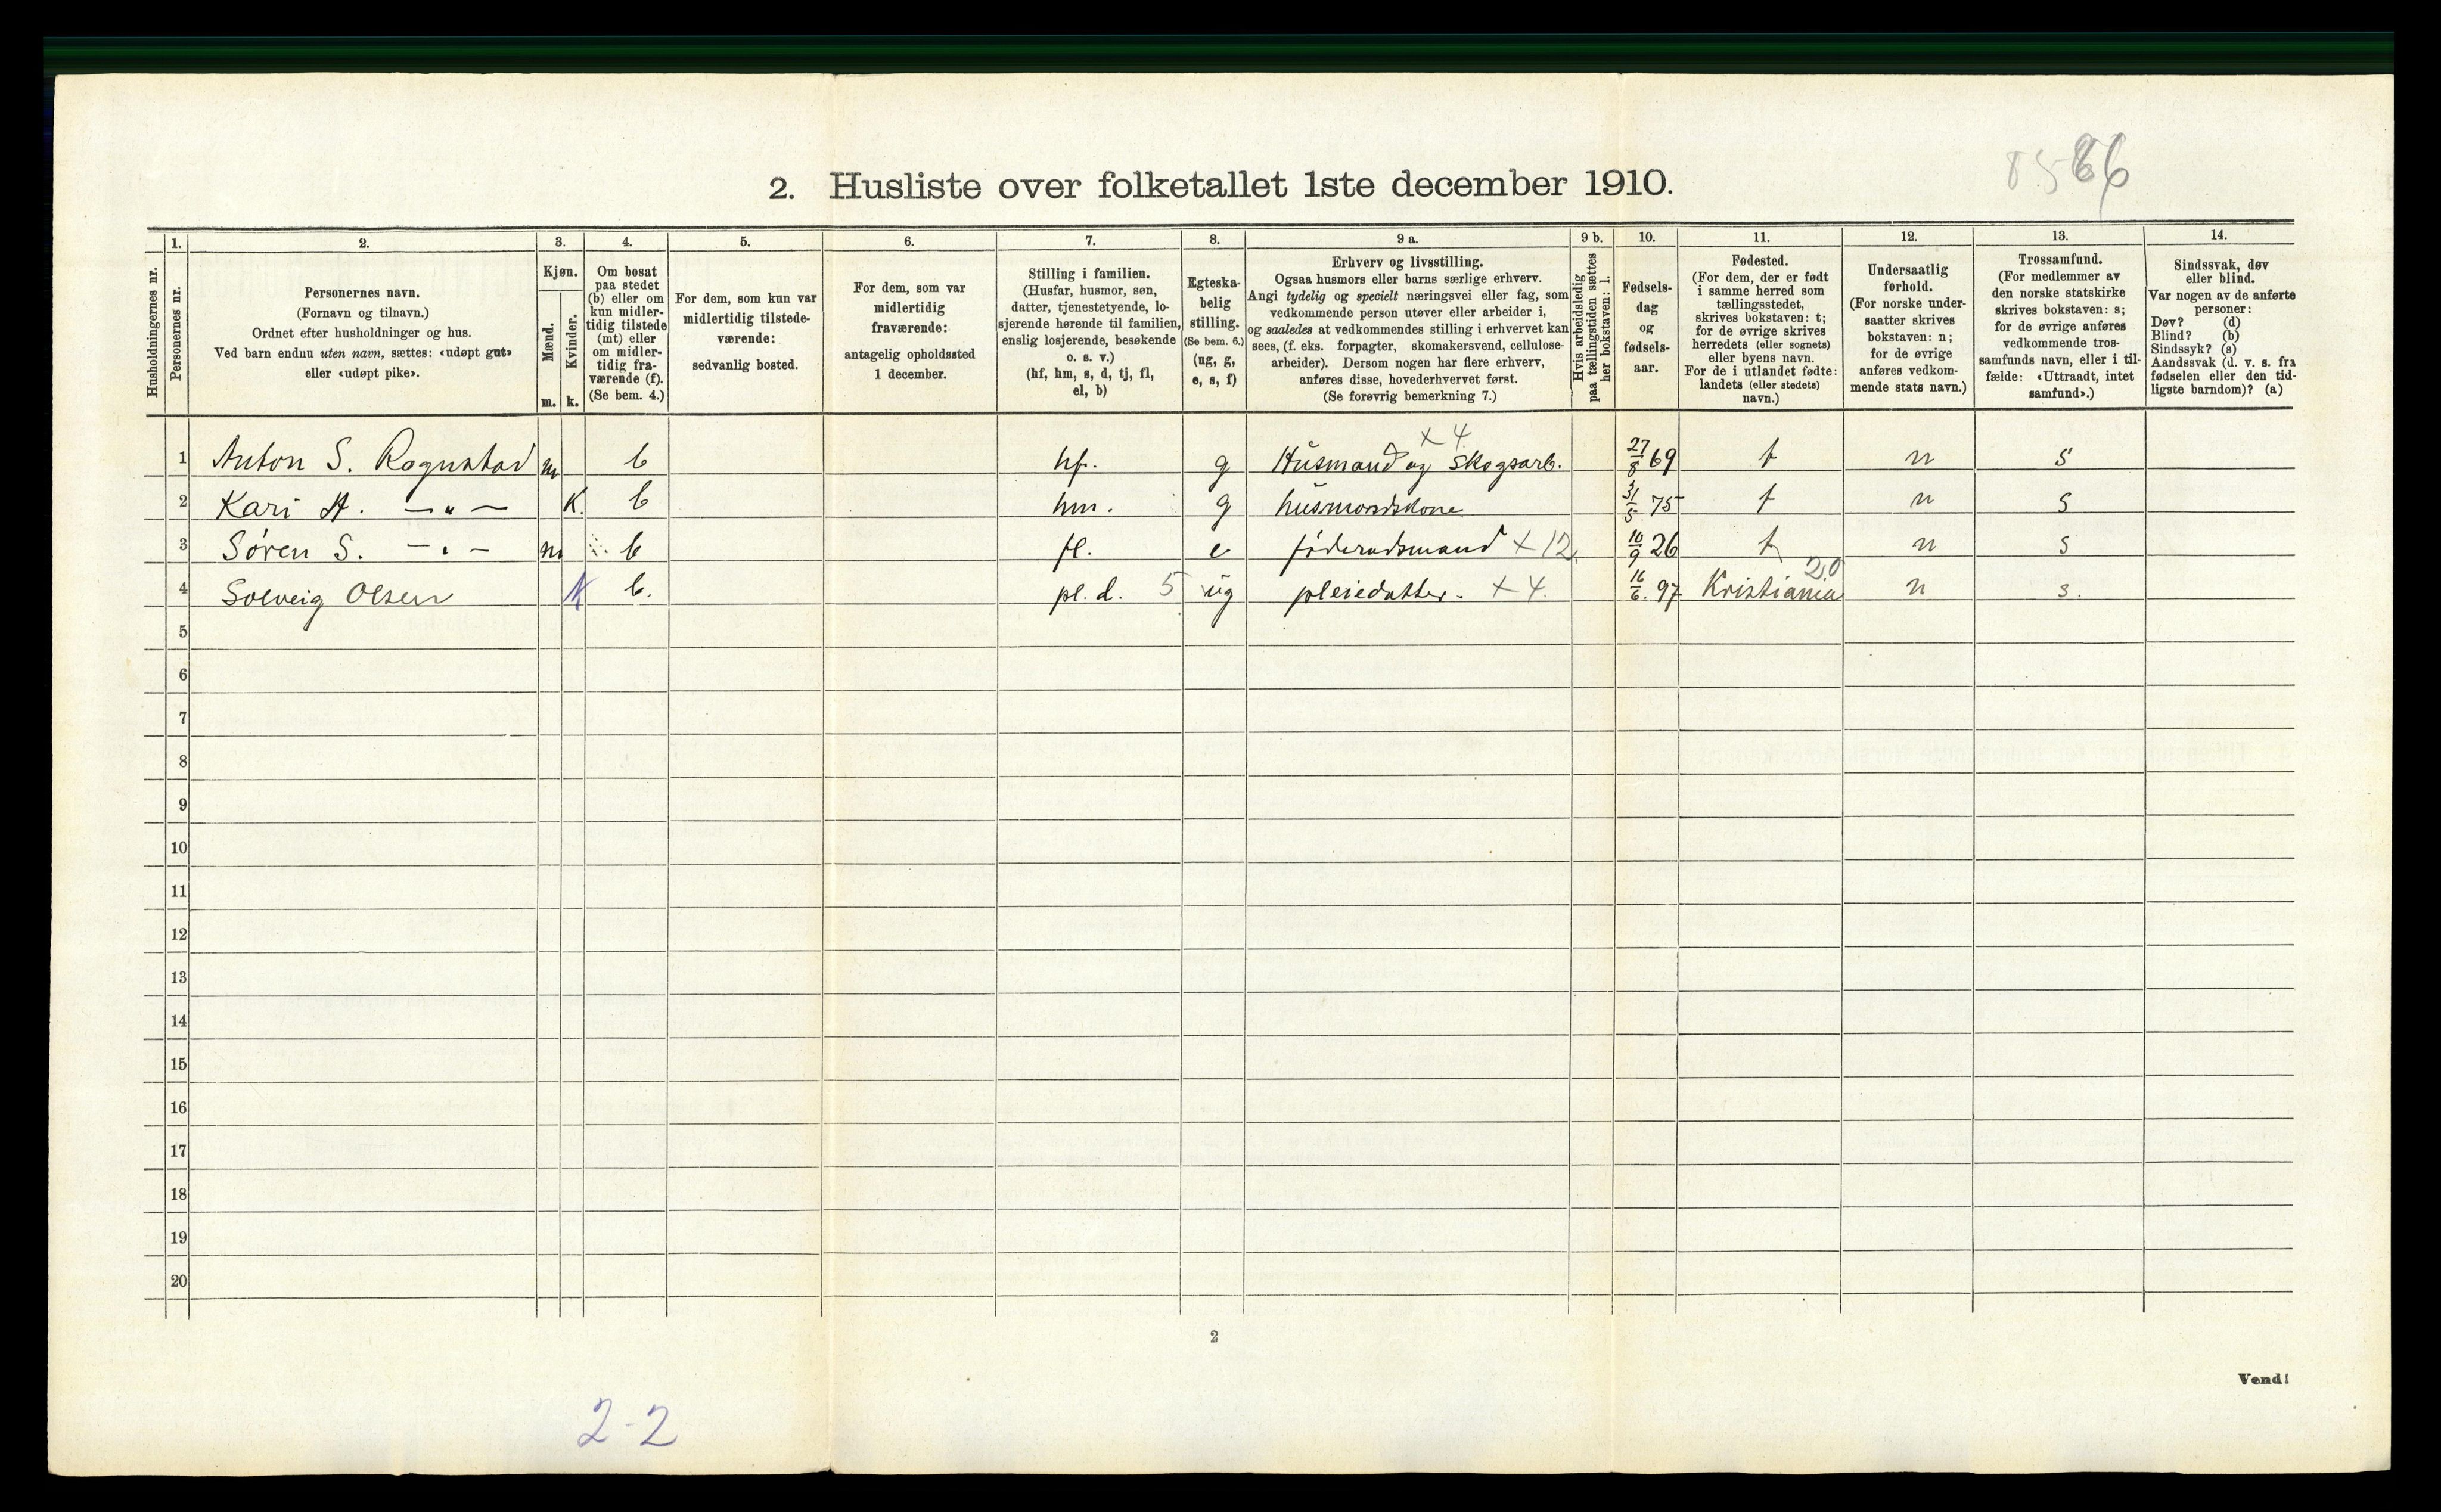 8586
2. Husliste over folketallet 1ste december 1910.
Husholdningernes nr.
1. Personernes nr.
2. Personernes navn. (Fornavn og tilnavn.) Ordnet efter husholdninger og hus. Ved barn endnu uten navn, sættes: «udøpt gut» eller «udøpt pike».
3. Kjøn. Mænd. m. Kvinder. k.
4. Om bosat paa stedet (b) eller om kun midlertidig tilstede (mt) eller om midlertidig fraværende (f). (Se bem. 4.)
5. For dem, som kun var midlertidig tilstedeværende: sedvanlig bosted.
6. For dem, som var midlertidig fraværende: antagelig opholdssted 1 december.
7. Stilling i familien. (Husfar, husmor, søn, datter, tjenestetyende, losjerende hørende til familien, enslig losjerende, besøkende o. s. v.) (hf, hm, s, d, tj, fl, el, b)
8. Egteskabelig stilling. (Se bem. 6.) (ug, g, e, s, f)
9 a. Erhverv og livsstilling. Ogsaa husmors eller barns særlige erhverv. Angi tydelig og specielt næringsvei eller fag, som vedkommende person utøver eller arbeider i, og saaledes at vedkommendes stilling i erhvervet kan sees, (f. eks. forpagter, skomakersvend, cellulosearbeider). Dersom nogen har flere erhverv, anføres disse, hovederhvervet først. (Se forøvrig bemerkning 7.)
9 b. Hvis arbeidsledig paa tællingstiden sættes her bokstaven: l.
10. Fødselsdag og fødselsaar.
11. Fødested. (For dem, der er født i samme herred som tællingsstedet, skrives bokstaven: t; for de øvrige skrives herredets (eller sognets) eller byens navn. For de i utlandet fødte: landets (eller stedets) navn.)
12. Undersaatlig forhold. (For norske undersaatter skrives bokstaven: n; for de øvrige anføres vedkommende stats navn.)
13. Trossamfund. (For medlemmer av den norske statskirke skrives bokstaven: s; for de øvrige anføres vedkommende trossamfunds navn, eller i tilfælde: «Uttraadt, intet samfund».)
14. Sindssvak, døv eller blind. Var nogen av de anførte personer: Døv? (d) Blind? (b) Sindssyk? (s) Aandssvak (d. v. s. fra fødselen eller den tidligste barndom)? (a)
1 Anton S. Rognstad m b hf. g Husmand og skogsarb. x 4. 27/8 69 t n s
2 Kari A. — „ — K. b hm. g husmandskone 31/5 75 t n s
3 Søren S. — „ — m b fl. e føderadsmand x 12. 10/9 26 t n s
4 Solveig Olsen K b. pl. d. 5 ug pleiedatter. x 4. 16/6. 97 Kristiania 20 n s.
5
6
7
8
9
10
11
12
13
14
15
16
17
18
19
20
2
Vend!
2-2